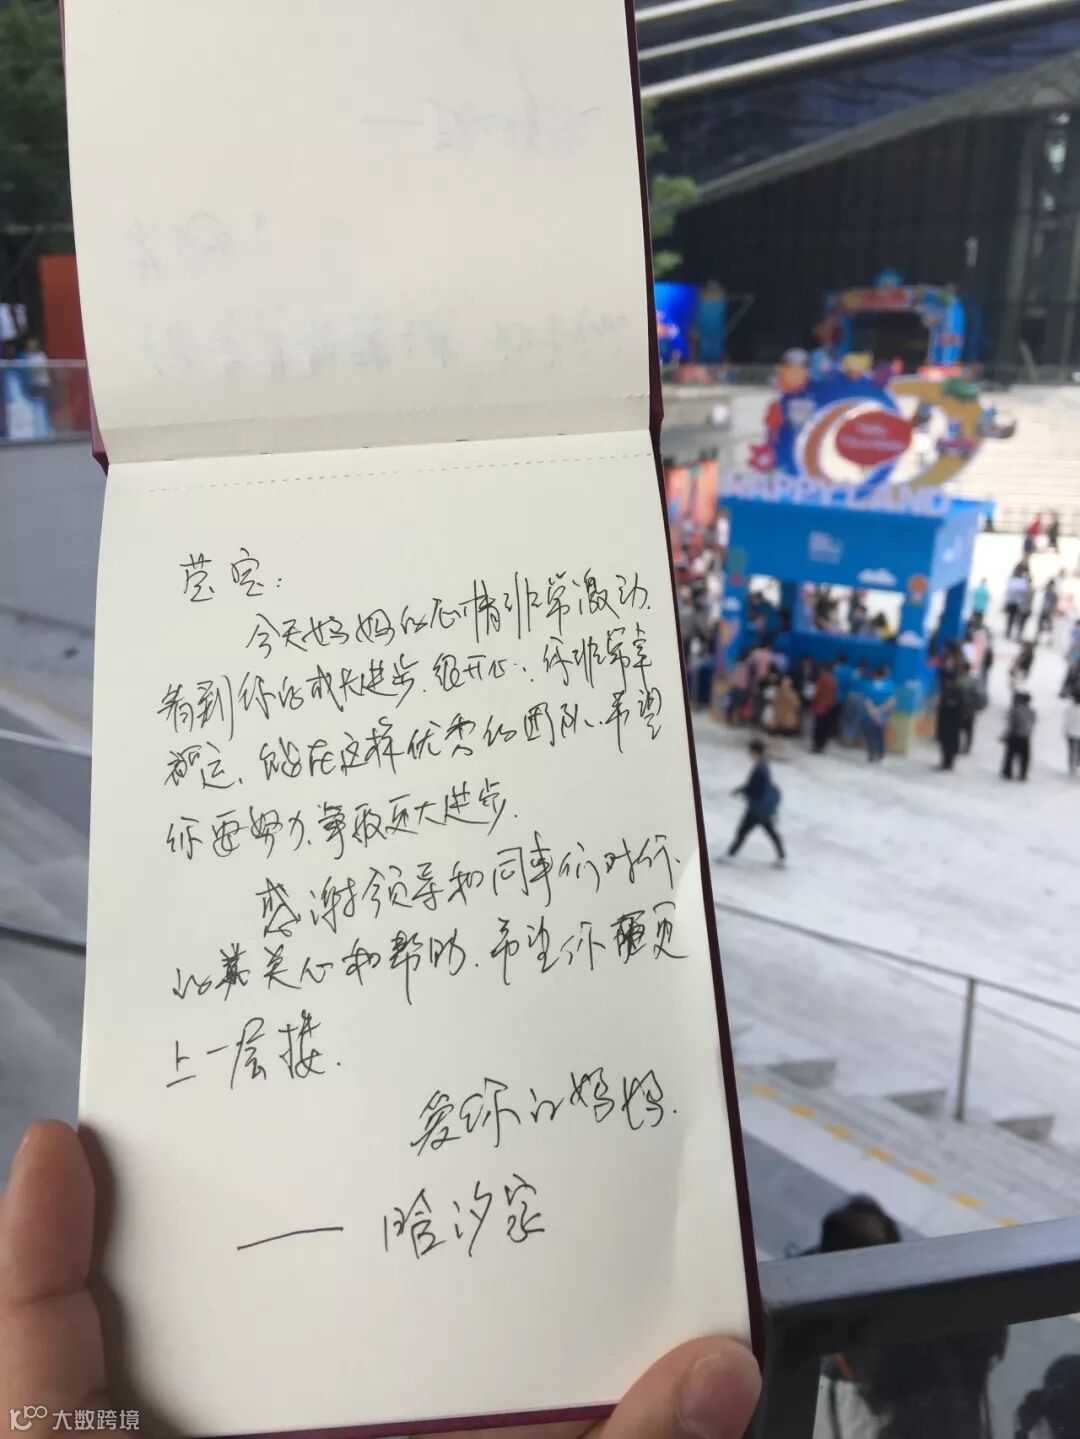 莹宝:
今天妈妈的心情非常激动.
看到你的成长进步.很开心.你非常幸
福运.能在这样优秀的团队.希望
你要努力.争取更大进步.
感谢领导和同事们对你.
的关心和帮助.希望你更
上一层楼.
爱你的妈妈.
— 晗汐家
HAPPY LAND
大数跨境